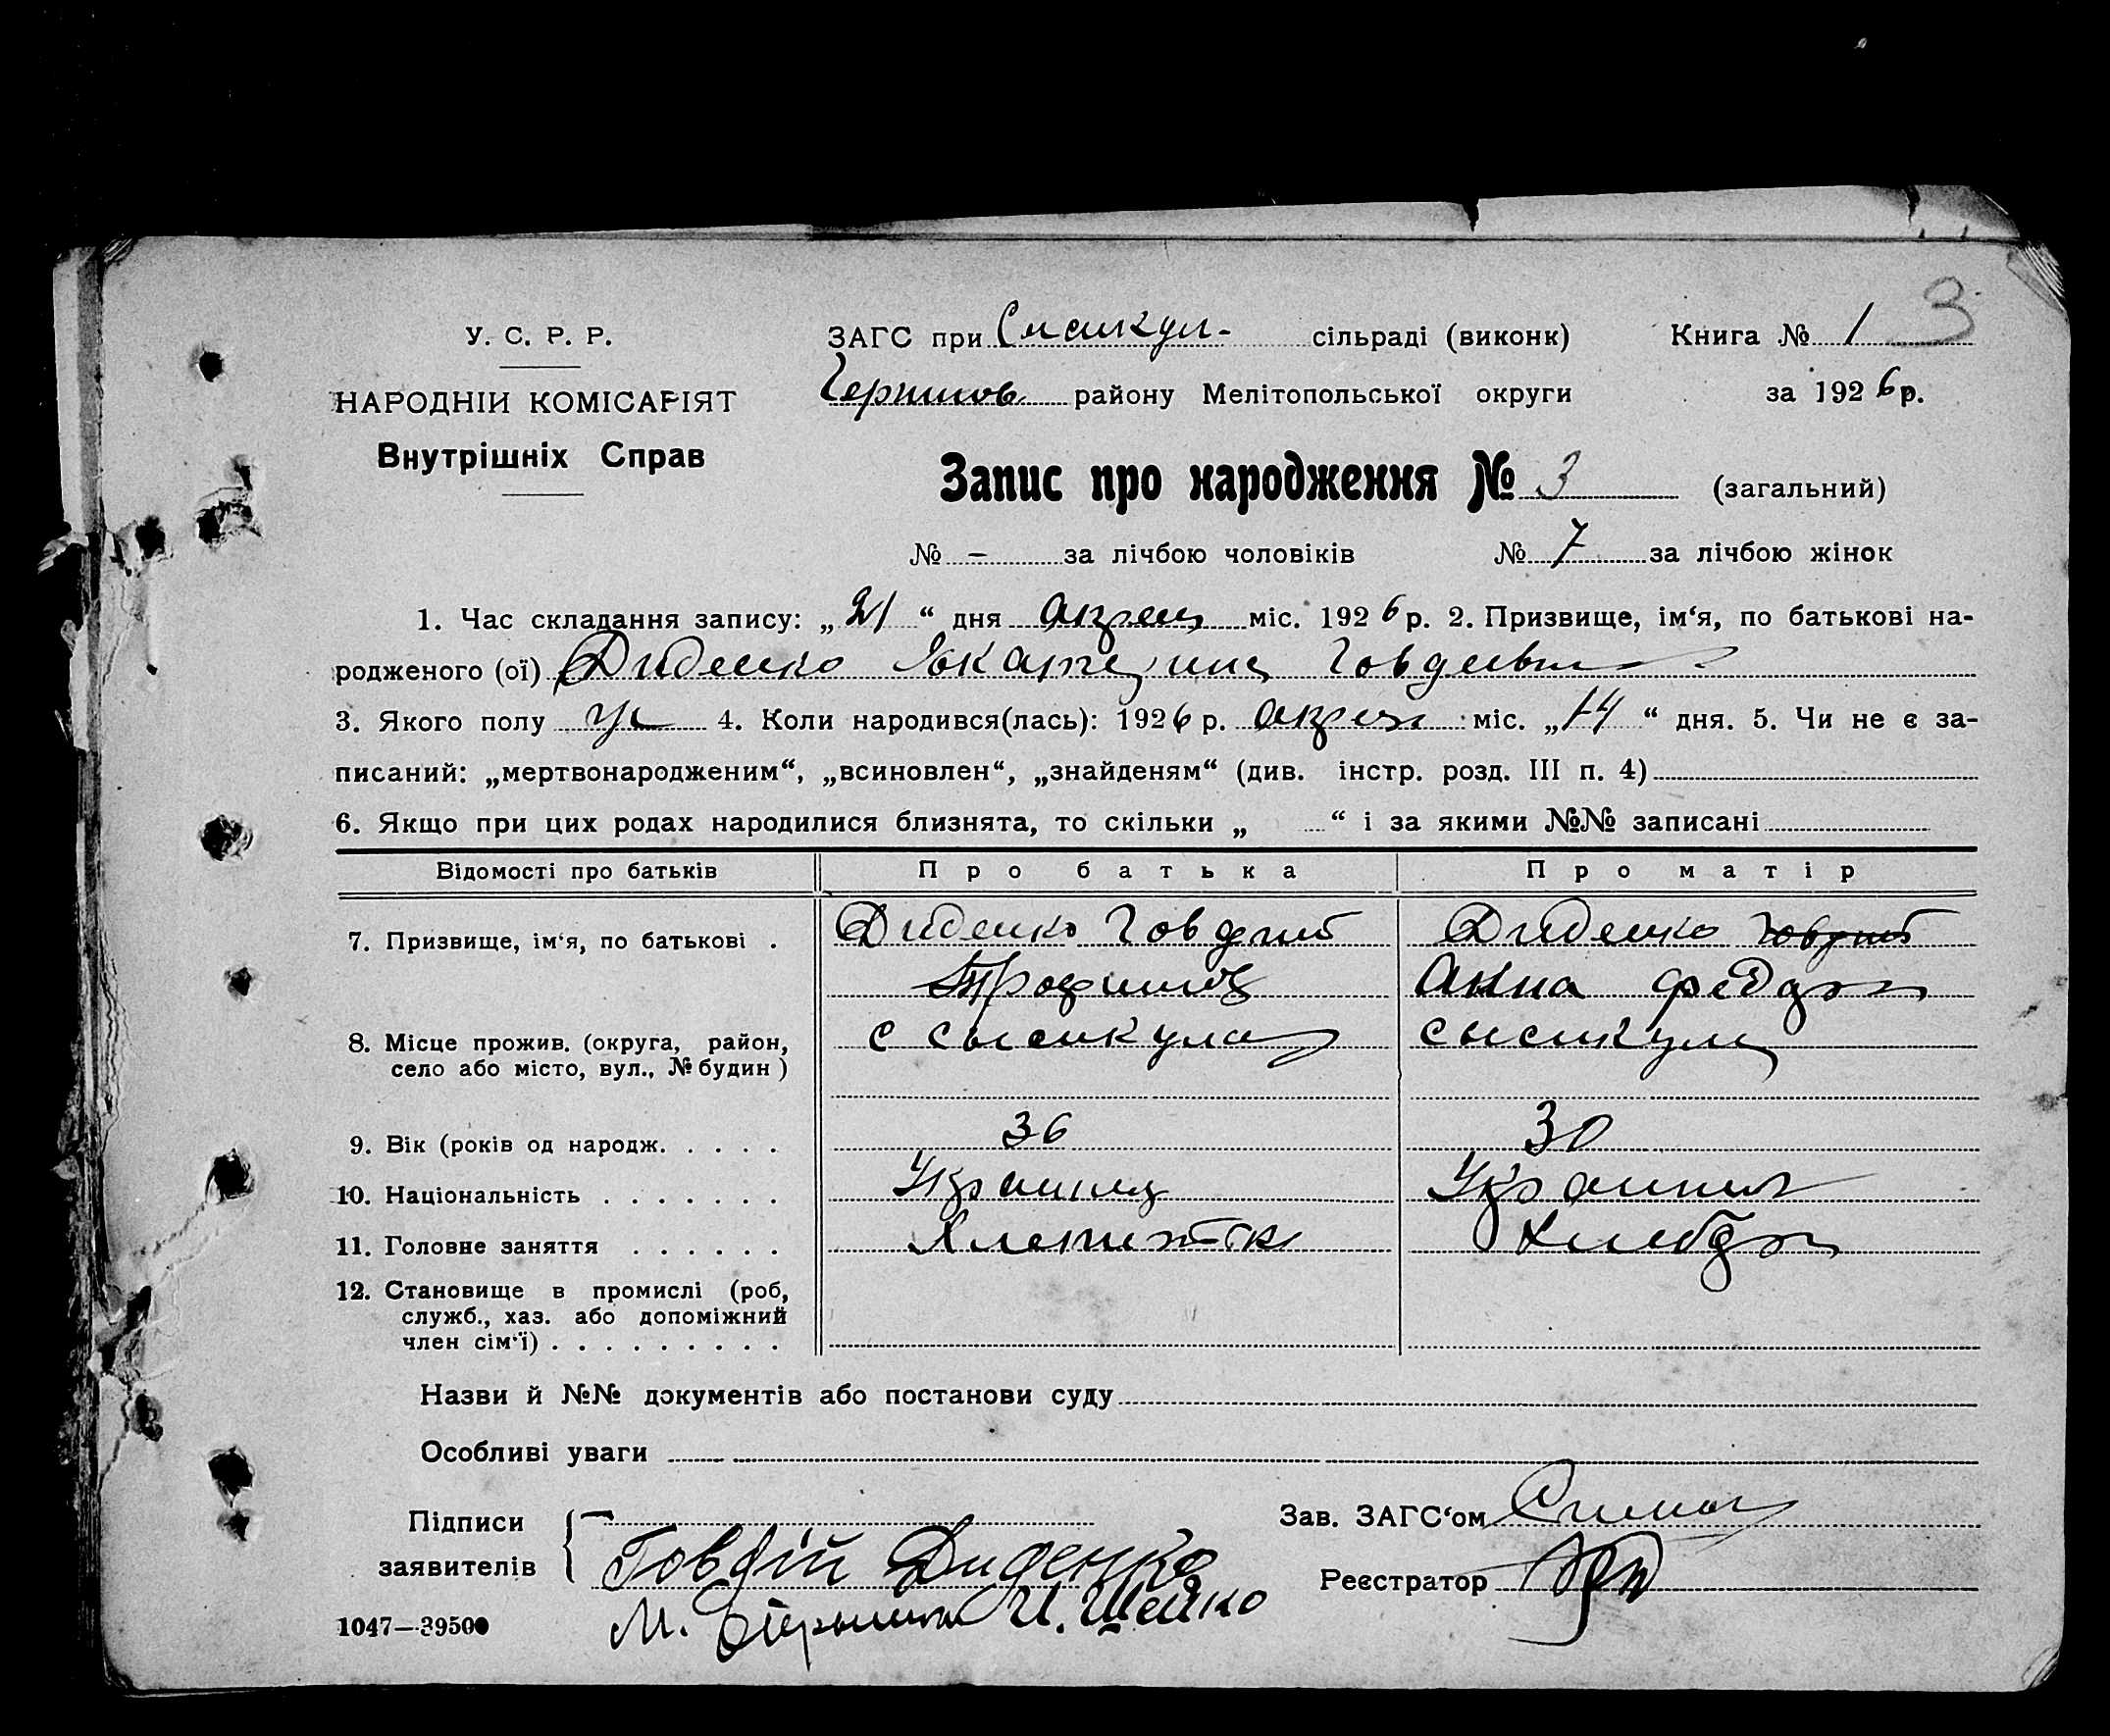 3
У. С. Р. Р.
НАРОДНІЙ КОМІСАРІЯТ
Внутрішніх Справ
ЗАГС при сільраді (виконк) Книга № 1
району Мелітопольської округи за 1926 р.
Запис про народження № 3 (загальний)
№ - за лічбою чоловіків № 7 за лічбою жінок
1. Час складання запису: „21“ дня апрель міс. 1926 р. 2. Призвище, ім‘я, по батькові на-
родженого (ої) Диденко Екатерина
3. Якого полу 4. Коли народився(лась): 1926 р. апрель міс. „14“ дня. 5. Чи не є за-
писаний: „мертвонародженим“, „всиновлен“, „знайденям“ (див. інстр. розд. III п. 4)
6. Якщо при цих родах народилися близнята, то скільки „ “ і за якими №№ записані
Відомості про батьків Про батька Про матір
7. Призвище, ім‘я, по батькові . Диденко Говдий Диденко Говдий
Трофимов Анна Федор
8. Місце прожив. (округа, район, с Сысикула Сысикула
село або місто, вул., № будин )
9. Вік (років од народж. . . . . 36 30
10. Національність . . . . . . . Украинец Украинка
11. Головне заняття . . . . . . Хлебороб
12. Становище в промислі (роб,
служб., хаз. або допоміжний
член сім‘ї) . . . . . . . . .
Назви й №№ документів або постанови суду
Особливі уваги
Підписи Зав. ЗАГС‘ом
заявителів Говдій Диденко Реєстратор
1047—39500 М. И. Шейко